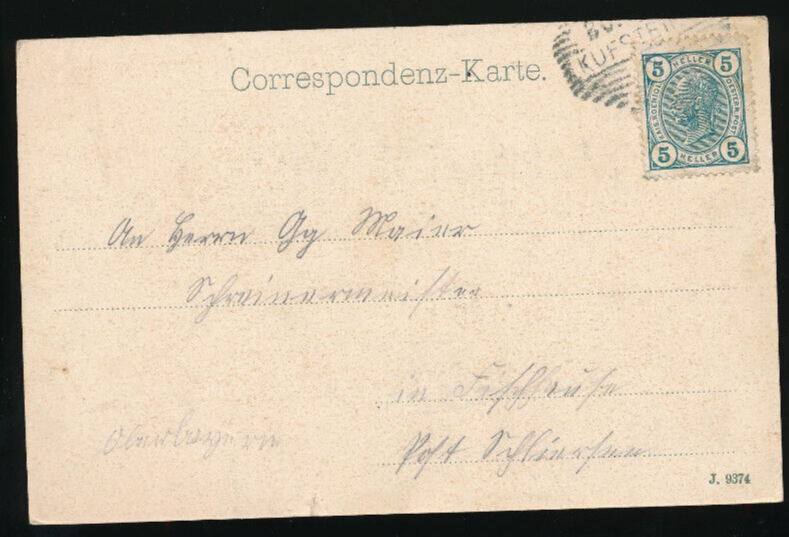 20.
KUFSTE
Correspondenz-Karte.
5 HELLER 5
5 HELLER 5
An Herrn Gg Maier
Schreinermeister
in
Oberbayern
Post Schliersee
J. 9374